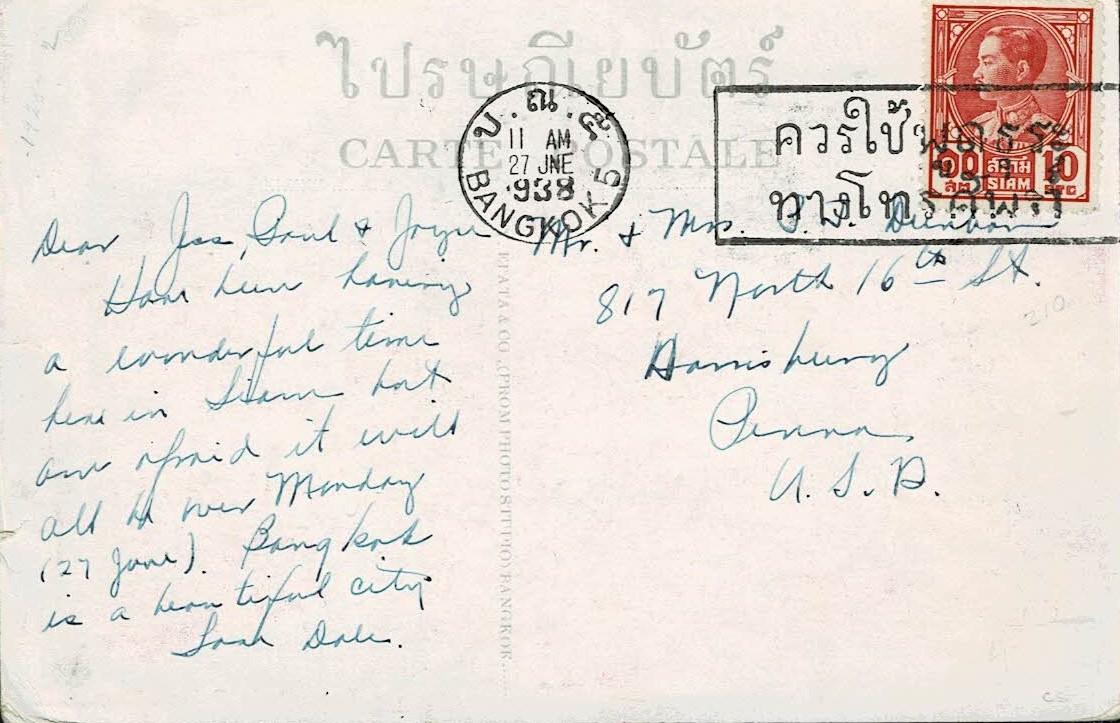 ไปรษณียบัตร์
CARTE POSTALE
บ.ณ.๕
11 AM
27 JNE
1938
BANGKOK 5
ควรใช้
ทางโทรศัพท์
๑๐ สยาม 10
สต. SIAM STG
Dear Jess, Paul & Joyce
Have been having
a wonderful time
here in Siam but
am afraid it will
all be over Monday
(27 June). Bangkok
is a beautiful city.
Love Dale.
Mr. & Mrs. S. S. Dunbar
817 North 16th St.
Harrisburg
Penna
U. S. A.
210
(FROM PHOTO STUDIO) BANGKOK